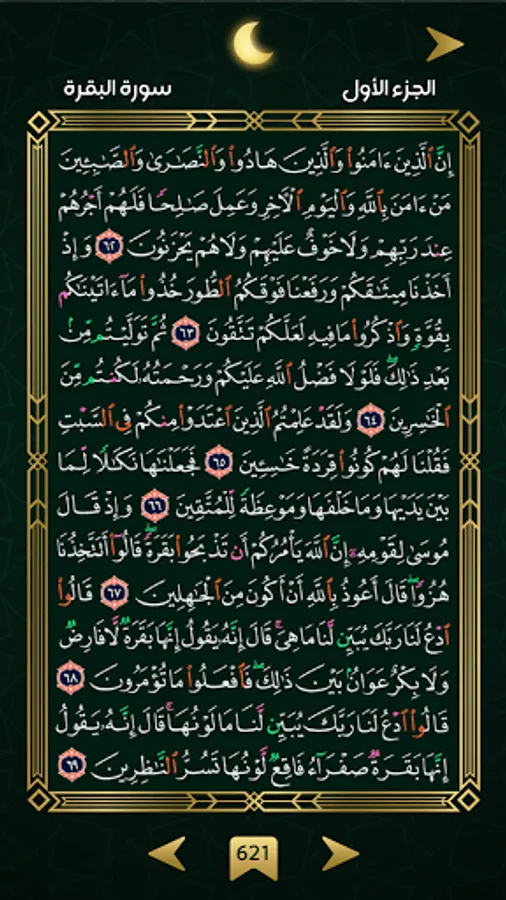 سورة البقرة
الجزء الأول
إِنَّ ٱلَّذِينَ ءَامَنُوا۟ وَٱلَّذِينَ هَادُوا۟ وَٱلنَّصَٰرَىٰ وَٱلصَّٰبِـِٔينَ
مَنْ ءَامَنَ بِٱللَّهِ وَٱلْيَوْمِ ٱلْءَاخِرِ وَعَمِلَ صَٰلِحًا فَلَهُمْ أَجْرُهُمْ
عِندَ رَبِّهِمْ وَلَا خَوْفٌ عَلَيْهِمْ وَلَا هُمْ يَحْزَنُونَ ٦٢ وَإِذْ
أَخَذْنَا مِيثَٰقَكُمْ وَرَفَعْنَا فَوْقَكُمُ ٱلطُّورَ خُذُوا۟ مَآ ءَاتَيْنَٰكُم
بِقُوَّةٍ وَٱذْكُرُوا۟ مَا فِيهِ لَعَلَّكُمْ تَتَّقُونَ ٦٣ ثُمَّ تَوَلَّيْتُم مِّنۢ
بَعْدِ ذَٰلِكَ ۖ فَلَوْلَا فَضْلُ ٱللَّهِ عَلَيْكُمْ وَرَحْمَتُهُۥ لَكُنتُم مِّنَ
ٱلْخَٰسِرِينَ ٦٤ وَلَقَدْ عَلِمْتُمُ ٱلَّذِينَ ٱعْتَدَوْا۟ مِنكُمْ فِى ٱلسَّبْتِ
فَقُلْنَا لَهُمْ كُونُوا۟ قِرَدَةً خَٰسِـِٔينَ ٦٥ فَجَعَلْنَٰهَا نَكَٰلًا لِّمَا
بَيْنَ يَدَيْهَا وَمَا خَلْفَهَا وَمَوْعِظَةً لِّلْمُتَّقِينَ ٦٦ وَإِذْ قَالَ
مُوسَىٰ لِقَوْمِهِۦٓ إِنَّ ٱللَّهَ يَأْمُرُكُمْ أَن تَذْبَحُوا۟ بَقَرَةً ۖ قَالُوٓا۟ أَتَتَّخِذُنَا
هُزُوًا ۖ قَالَ أَعُوذُ بِٱللَّهِ أَنْ أَكُونَ مِنَ ٱلْجَٰهِلِينَ ٦٧ قَالُوا۟
ٱدْعُ لَنَا رَبَّكَ يُبَيِّن لَّنَا مَا هِىَ ۚ قَالَ إِنَّهُۥ يَقُولُ إِنَّهَا بَقَرَةٌ لَّا فَارِضٌ
وَلَا بِكْرٌ عَوَانٌۢ بَيْنَ ذَٰلِكَ ۖ فَٱفْعَلُوا۟ مَا تُؤْمَرُونَ ٦٨
قَالُوا۟ ٱدْعُ لَنَا رَبَّكَ يُبَيِّن لَّنَا مَا لَوْنُهَا ۚ قَالَ إِنَّهُۥ يَقُولُ
إِنَّهَا بَقَرَةٌ صَفْرَآءُ فَاقِعٌ لَّوْنُهَا تَسُرُّ ٱلنَّٰظِرِينَ ٦٩
621